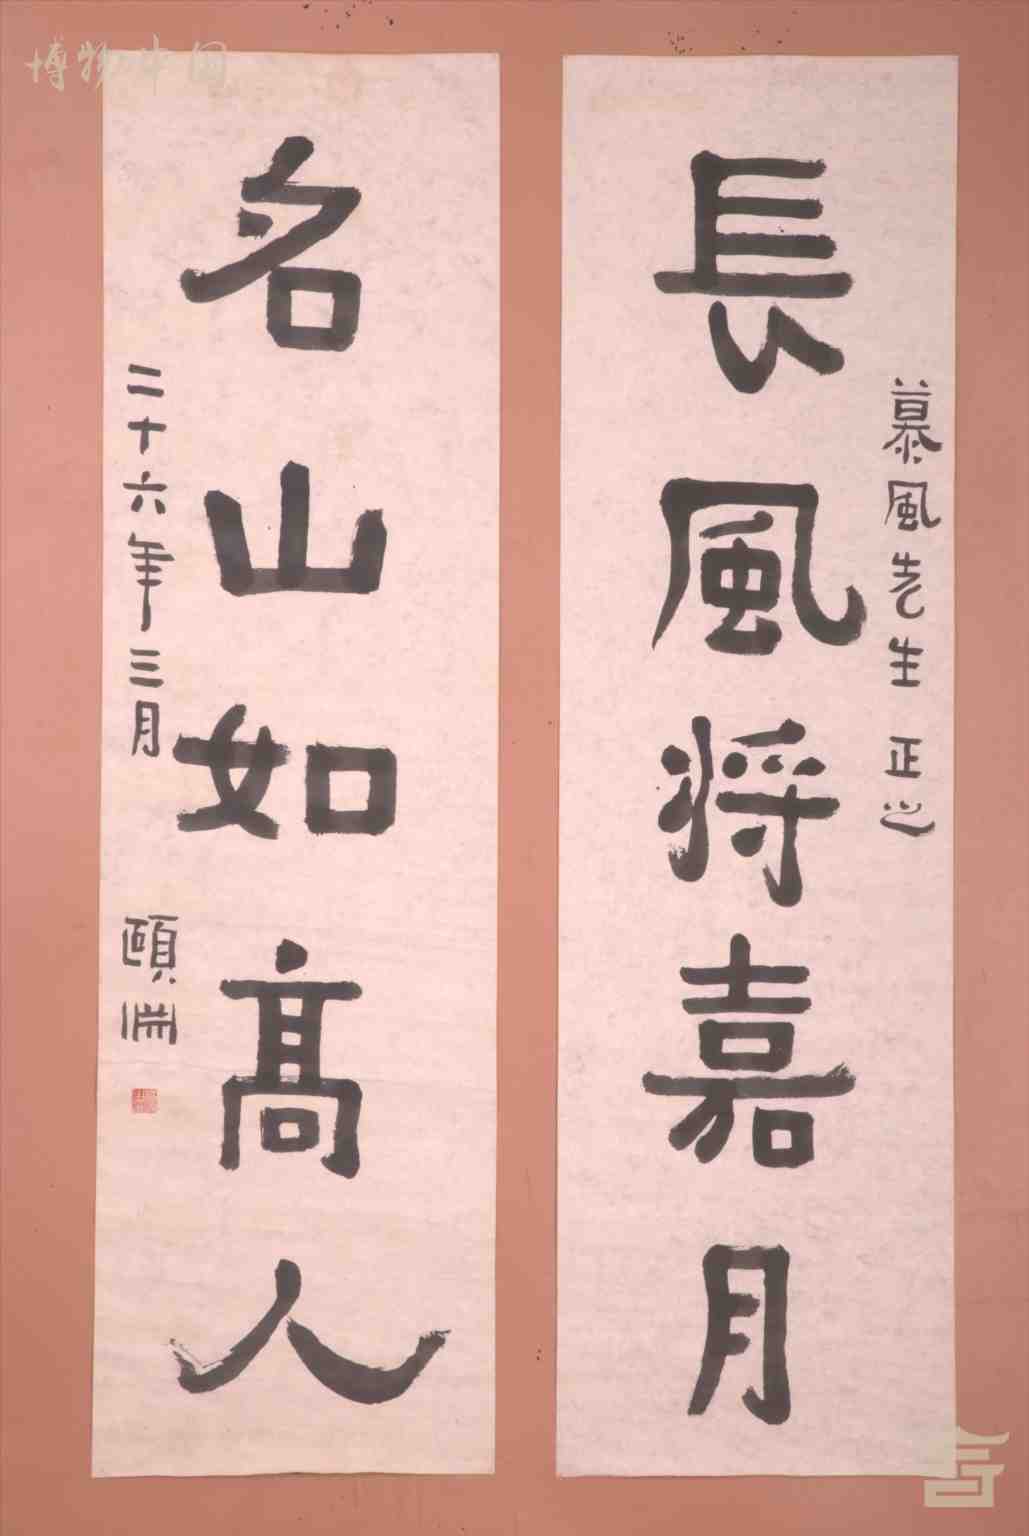 慕風先生 正之
長風将嘉月
名山如高人
二十六年三月 頤淵
博物中國